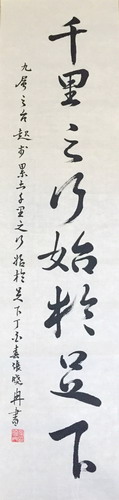 千里之行始於足下
九層之台起於累土千里之行始於足下丁酉春張曉舟書